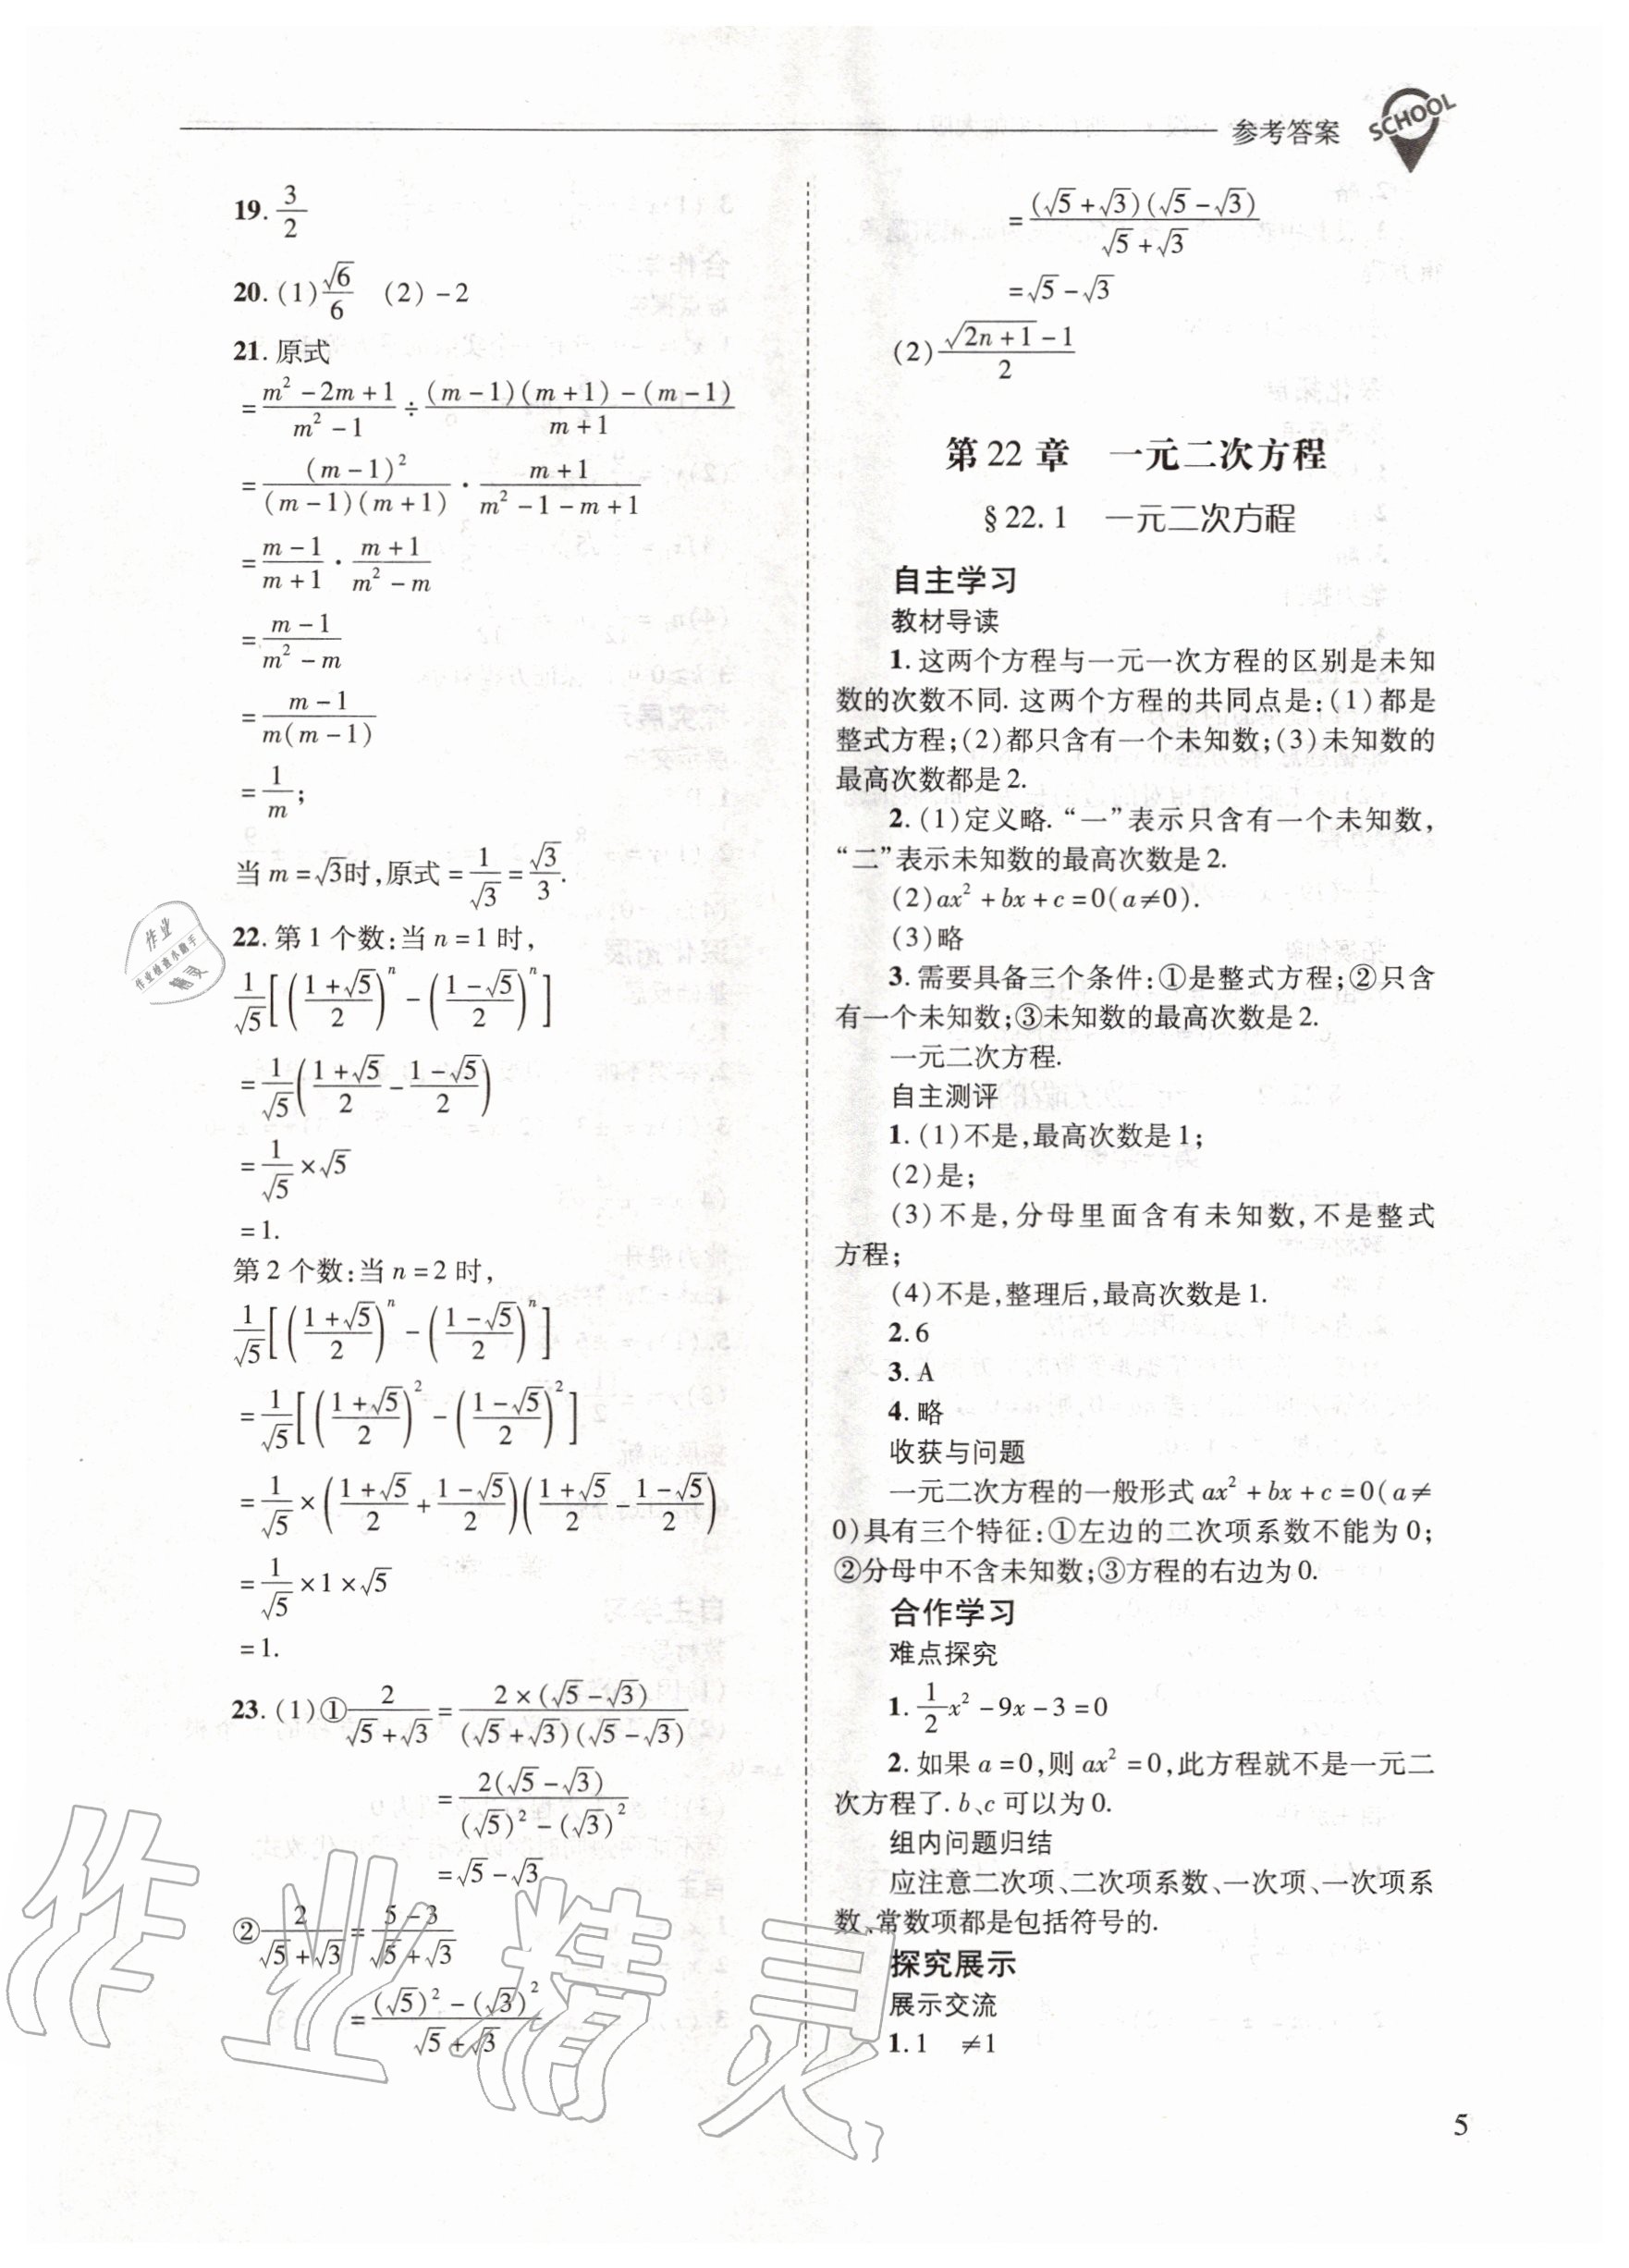 参考答案
SCHOOL
19. 3/2
20. (1) √6/6 (2) -2
21. 原式
= (m² - 2m + 1)/(m² - 1) ÷ ((m-1)(m+1) - (m-1))/(m+1)
= (m-1)²/((m-1)(m+1)) · (m+1)/(m² - 1 - m + 1)
= (m-1)/(m+1) · (m+1)/(m² - m)
= (m-1)/(m² - m)
= (m-1)/(m(m-1))
= 1/m;
当 m = √3时,原式 = 1/√3 = √3/3.
22. 第 1 个数:当 n = 1 时,
1/√5[((1+√5)/2)ⁿ - ((1-√5)/2)ⁿ]
= 1/√5((1+√5)/2 - (1-√5)/2)
= 1/√5 × √5
= 1.
第 2 个数:当 n = 2 时,
1/√5[((1+√5)/2)ⁿ - ((1-√5)/2)ⁿ]
= 1/√5[((1+√5)/2)² - ((1-√5)/2)²]
= 1/√5 × ((1+√5)/2 + (1-√5)/2)((1+√5)/2 - (1-√5)/2)
= 1/√5 × 1 × √5
= 1.
23. (1)① 2/(√5+√3) = 2×(√5-√3)/((√5+√3)(√5-√3))
= 2(√5-√3)/((√5)² - (√3)²)
= √5 - √3
② 2/(√5+√3) = (5-3)/(√5+√3)
= ((√5)² - (√3)²)/(√5+√3)
= (√5+√3)(√5-√3)/(√5+√3)
= √5 - √3
(2) (√(2n+1) - 1)/2
第 22 章 一元二次方程
§ 22. 1 一元二次方程
自主学习
教材导读
1. 这两个方程与一元一次方程的区别是未知
数的次数不同. 这两个方程的共同点是:(1)都是
整式方程;(2)都只含有一个未知数;(3)未知数的
最高次数都是 2.
2. (1)定义略. “一”表示只含有一个未知数,
“二”表示未知数的最高次数是 2.
(2)ax² + bx + c = 0(a≠0).
(3)略
3. 需要具备三个条件:①是整式方程;②只含
有一个未知数;③未知数的最高次数是 2.
一元二次方程.
自主测评
1. (1)不是,最高次数是 1;
(2)是;
(3)不是,分母里面含有未知数,不是整式
方程;
(4)不是,整理后,最高次数是 1.
2. 6
3. A
4. 略
收获与问题
一元二次方程的一般形式 ax² + bx + c = 0(a≠
0)具有三个特征:①左边的二次项系数不能为 0;
②分母中不含未知数;③方程的右边为 0.
合作学习
难点探究
1. 1/2x² - 9x - 3 = 0
2. 如果 a = 0,则 ax² = 0,此方程就不是一元二
次方程了. b、c 可以为 0.
组内问题归结
应注意二次项、二次项系数、一次项、一次项系
数、常数项都是包括符号的.
探究展示
展示交流
1. 1 ≠1
5
作业
作业检查小助手
精灵
作业精灵